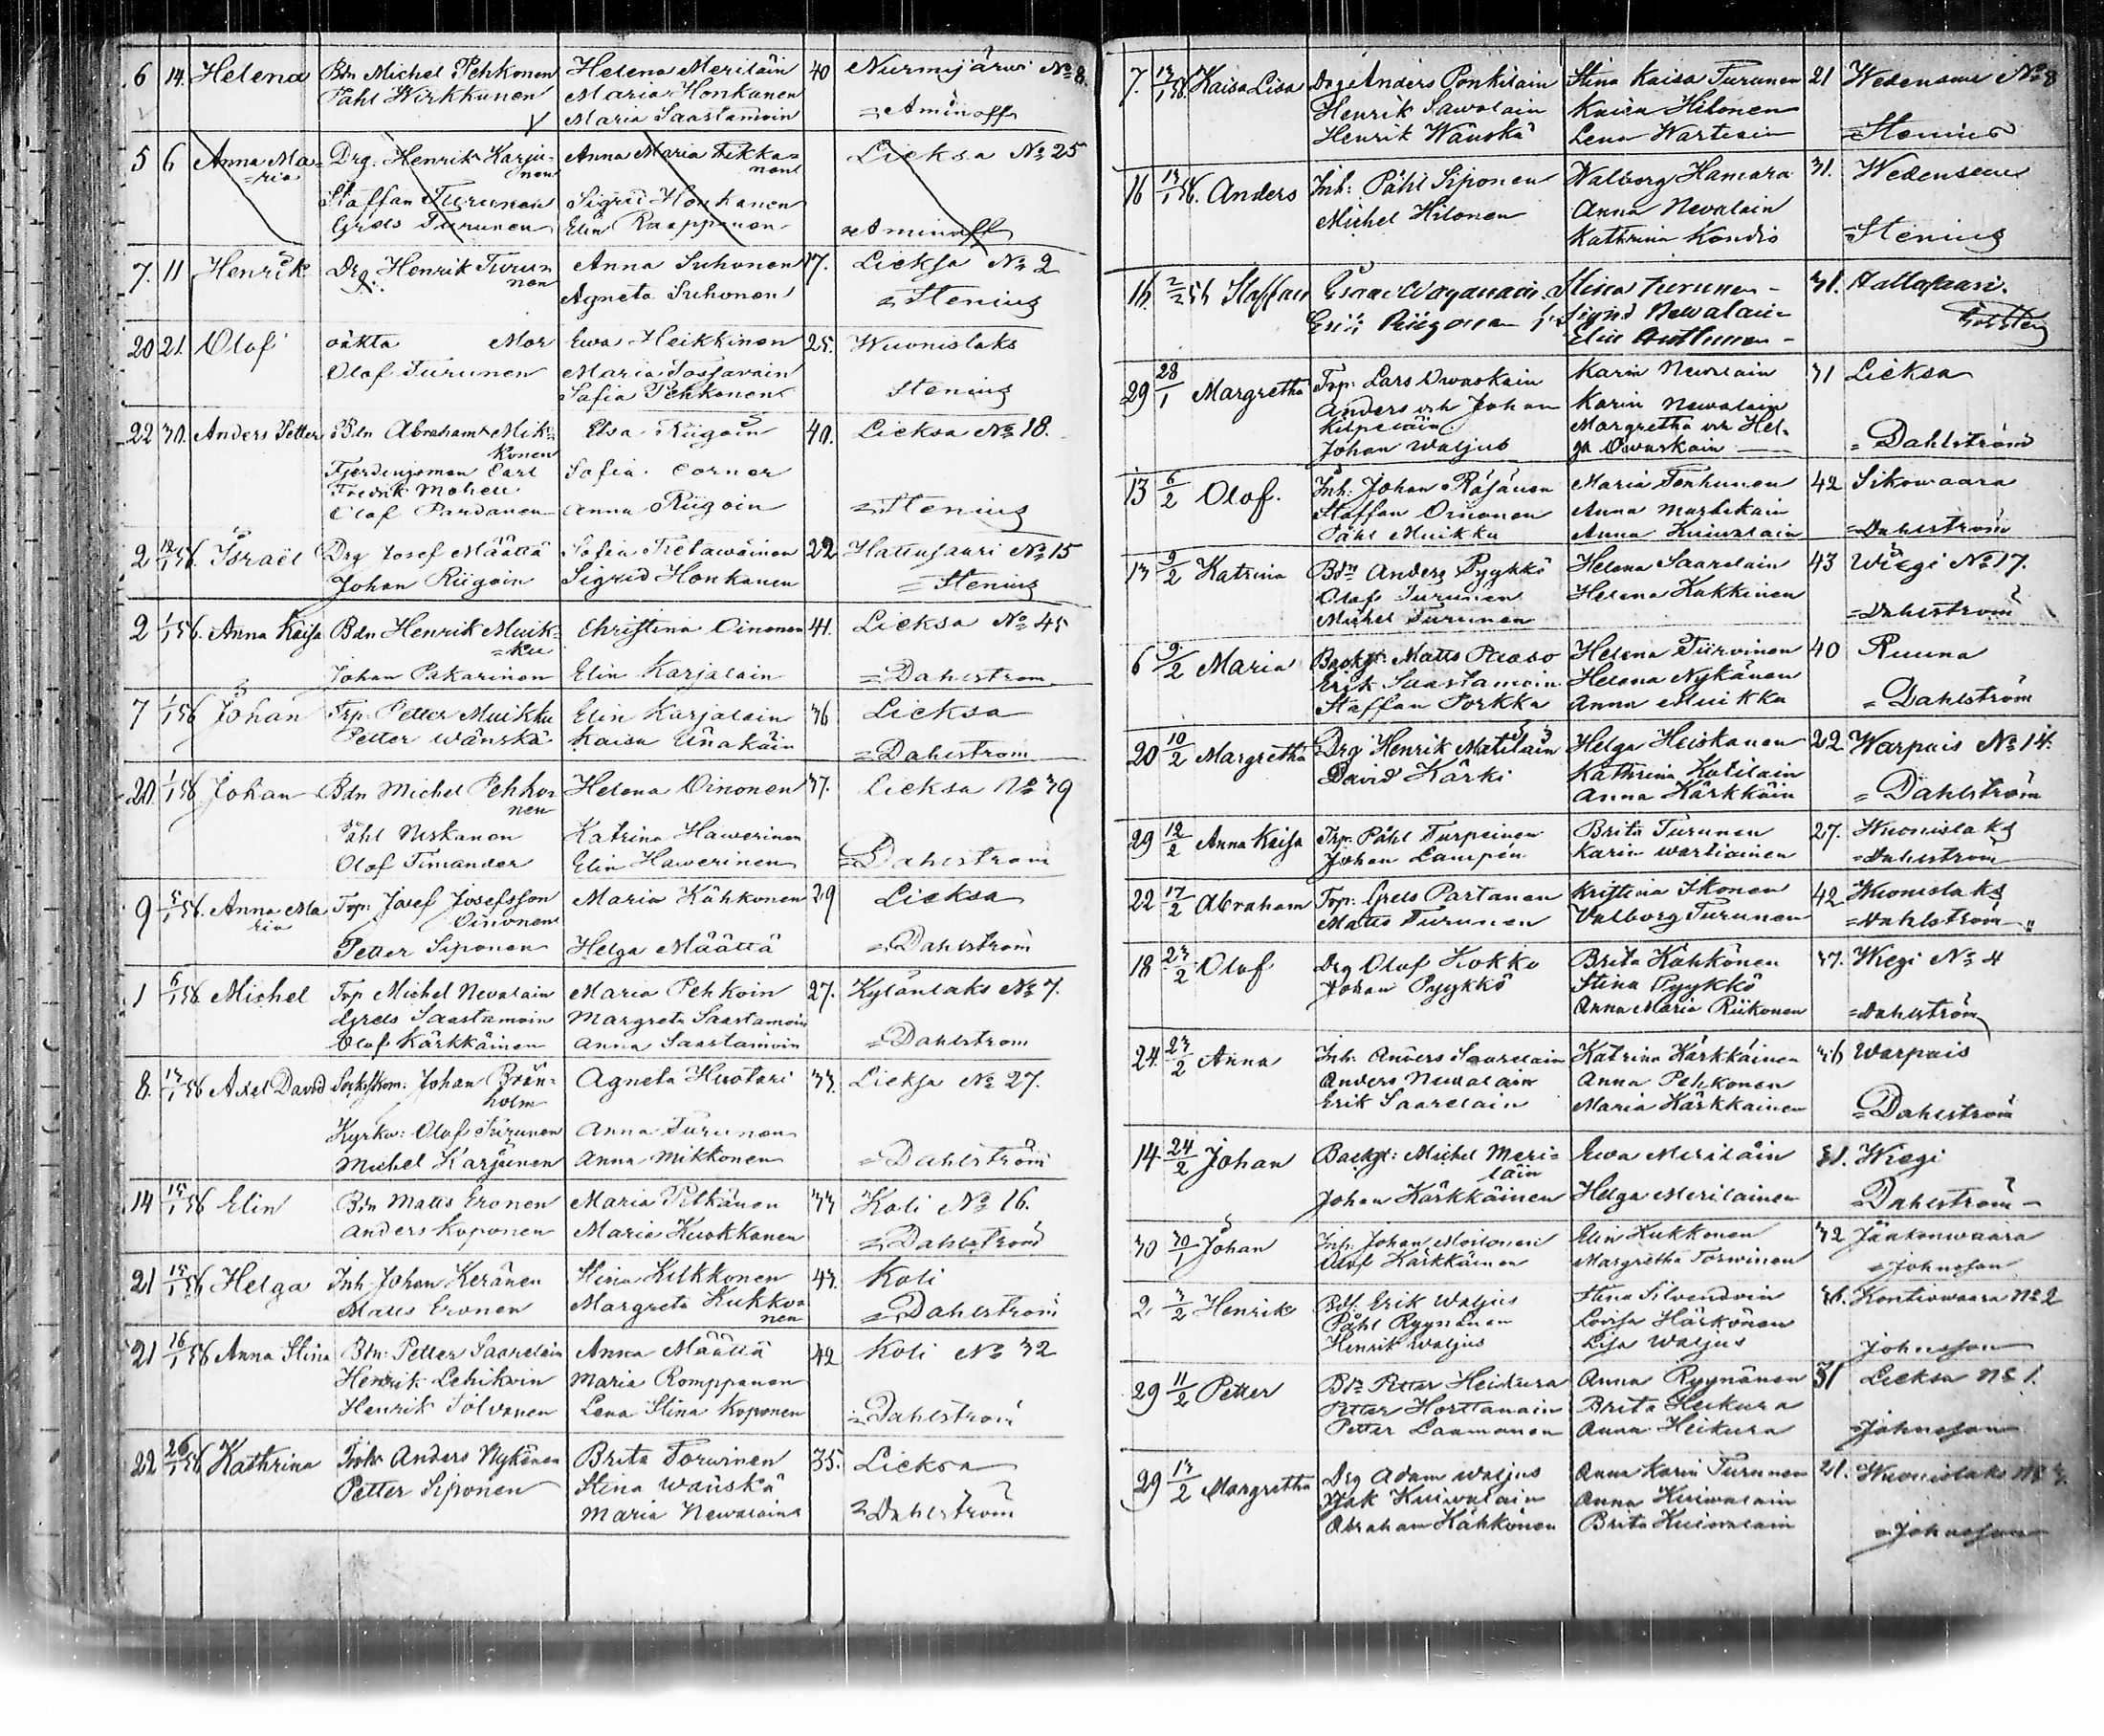 6 14. Helena Bdn Michel Pehkonen Helena Meriläin 40 Nurmijärwi No 8.
Påhl Wirkkunen Maria Honkanen
Maria Saastamoin = Aminoff
5 6 Anna Ma= Drg. Henrik Karju= Anna Maria Tikka= Lieksa No 25
=ria nen nen
Staffan Turunen Sigrid Honkanen
Grels Turunen Elin Raappanen = Aminoff
7. 11 Henrik Drg. Henrik Turu= Anna Suhonen 17. Lieksa No 2
nen Agneta Suhonen = Stenius
20 21. Olof oäkta Mor Ewa Heikkinen 25. Wuonislaks
Olof Turunen Maria
Sofia Pehkonen Stenius
22 30. Anders Petter Bdn Abraham Mik= Elsa Riigoin 40. Lieksa No 18.
konen
Fjerdingsman Carl Sofia Corner
Fredrik Mohell
Olof Partanen Anna Riigoin = Stenius
2 56. Israël Drg Josef Määttä Sofia Tietawäinen 22 Hattusaari No 15
Johan Riigoin Sigrid Honkanen = Stenius
2 1/1 56. Anna Kaisa Bdn Henrik Muik= Christina Oinonen 41. Lieksa No 45
=ku
Johan Pakarinen Elin Karjalain = Dahlström
7 1/1 56 Johan Trp. Petter Muikku Elin Karjalain 36 Lieksa
Petter Wänskä Kaisa = Dahlström
20. 1/1 56 Johan Bdn Michel Pehko= Helena Oinonen 37. Lieksa No 39
nen
Påhl Neskanen Katrina Hawerinen
Olof Timander Elin Hawerinen = Dahlström
9 5/1 56. Anna Ma Trp: Josef Josefsson Maria Kähkonen 29 Lieksa
ria Oinonen
Petter Siponen Helga Määttä = Dahlström
1 6/1 56 Michel Trp Michel Nevalain Maria Pehkoin 27. Kylänlaks No 7.
Grels Saastamoin Margreta Saastamoin
Olof Kärkkäinen Anna Saastamoin = Dahlström
8. 13/1 56 Axel David Johan Brän= Agneta Huotari 33. Lieksa No 27.
holm
Kyrkv: Olof Turunen Anna Turunen
Michel Karjunen Anna Mikkonen = Dahlström
14 56 Elin Bdn Matts Eronen Maria Pitkänen 33 Koli No 16.
Anders Koponen Maria Kuokkanen = Dahlström
21 56 Helga Inh. Johan Keränen Stina Kukkonen 43. Koli
Matts Eronen Margreta Kukko= = Dahlström
nen
21 16/1 56 Anna Stina Bdn: Petter Saarelain Anna Määttä 42 Koli No 32
Henrik Lehikoin Maria Romppanen
Henrik Tolvanen Lena Stina Koponen = Dahlström
22 26/1 56 Kathrina Anders Nykänen Brita Torwinen 35. Lieksa
Petter Siponen Stina Wänskä
Maria Newalain = Dahlström
7. 56. Kaisa Lisa Drg Anders Ponkilain Stina Kaisa Turunen 21 Wedensuu No 8
Henrik Sawolain Kaisa Hilonen
Henrik Wänskä Lena Wartiain = Stenius
16 13/1 56. Anders Inh: Påhl Siponen Walborg Hamara 31. Wedensuu
Michel Hilonen Anna Nevalain
Kathrina Kondio = Stenius
16. 2/2 56 Staffan Stina Turunen 31. Hattusaari.
Sigrid Newalain
Elin
29 28/1 Margretha Trp: Lars Owaskain Karin Newalain 31 Lieksa
Anders och Johan Karin Newalain
Kilpeläin Margretha och Hel=
Johan Waljus ga Owaskain = Dahlström
13 6/2 Olof. Inh: Johan Räsänen Maria Tenhunen 42 Sikowaara
Staffan Oinonen Anna
Påhl Muikku Anna Kuiwalain = Dahlström
13 9/2 Katrina Bdn Anders Pyykkö Helena Saarelain 43 Wiegi No 17.
Olof Turunen Helena Kukkinen
Michel Turunen = Dahlström
6 9/2 Maria Backst: Matts Paaso Helena Tiirvinen 40 Ruuna
Erik Saastamoin Helena Nykänen
Staffan Porkka Anna Muikku = Dahlström
20 10/2 Margretha Drg Henrik Matilain Helga Heiskanen 22 Warpais No 14.
David Kärki Kathrina Kotilain
Anna Kärkkäin = Dahlström
29 12/2 Anna Kaisa Trp: Påhl Turpeinen Brita Turunen 27. Wuonislaks
Johan Lampén Karin Wartiainen = Dahlström
22 17/2 Abraham Trp: Grels Partanen Kristina Ikonen 42 Wuonislaks
Matts Turunen Valborg Turunen = Dahlström
18 23/2 Olof Drg Olof Kokko Brita Kähkönen 37. Wiegi No 4
Johan Pyykkö Stina Pyykkö
Anna Maria Riikonen = Dahlström
24 23/2 Anna Inh: Anders Saarelain Katrina Kärkkäinen 36 Warpais
Anders Newalain Anna Pehkonen
Erik Saarelain Maria Kärkkäinen = Dahlström
14 24/2 Johan Backst: Michel Meri= Ewa Meriläin 31. Wiegi
läin
Johan Kärkkäinen Helga Meriläinen Dahlström
30 30/1 Johan Inh: Johan Moilanen Elin Kukkonen 32 Jäntonwaara
Olof Kärkkäinen Margretha Torwinen = Johnsson
2 3/2 Henrik Bdf. Erik Waljus Stina Silvendoin 36. Kontiowaara No 2
Påhl Ryynänen Lovisa Härkönen
Henrik Waljus Lisa Waljus Johnsson
29 11/2 Petter Bdn Petter Heikura Anna Ryynänen 31 Lieksa No 1.
Petter Horttanain Brita Heikura
Petter Laamanen Anna Heikura Johnsson
29 13/2 Margretha Drg Adam Waljus Anna Karin Turunen 21. Wuonislaks
Isak Kuiwalain Anna Kuiwalain
Abraham Kähkönen Brita Kuiwalain = Johnsson